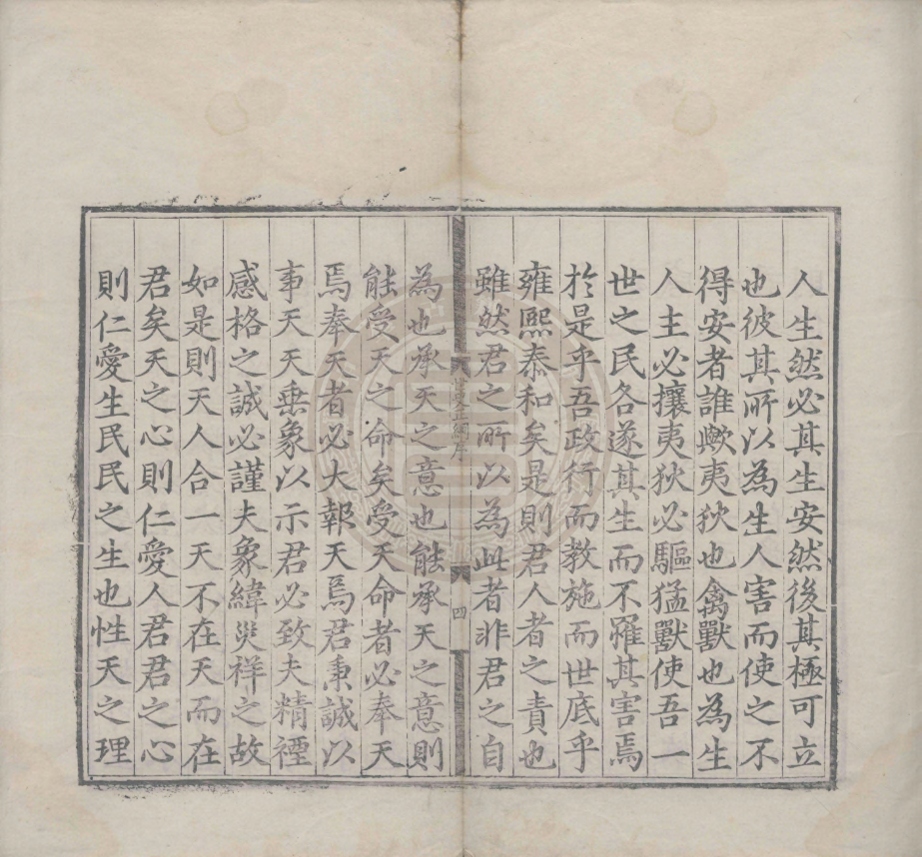 人生然必其生安然後其極可立
也彼其所以為生人害而使之不
得安者誰歟夷狄也禽獸也為生
人主必攘夷狄必驅猛獸使吾一
世之民各遂其生而不罹其害焉
於是乎吾政行而教施而世底乎
雍熙泰和矣是則君人者之責也
雖然君之所以為此者非君之自
世史正綱序
四
為也承天之意也能承天之意則
能受天之命矣受天命者必奉天
焉奉天者必大報天焉君秉誠以
事天天垂象以示君必致夫精禋
感格之誠必謹夫象緯災祥之故
如是則天人合一天不在天而在
君矣天之心則仁愛人君君之心
則仁愛生民民之生也性天之理